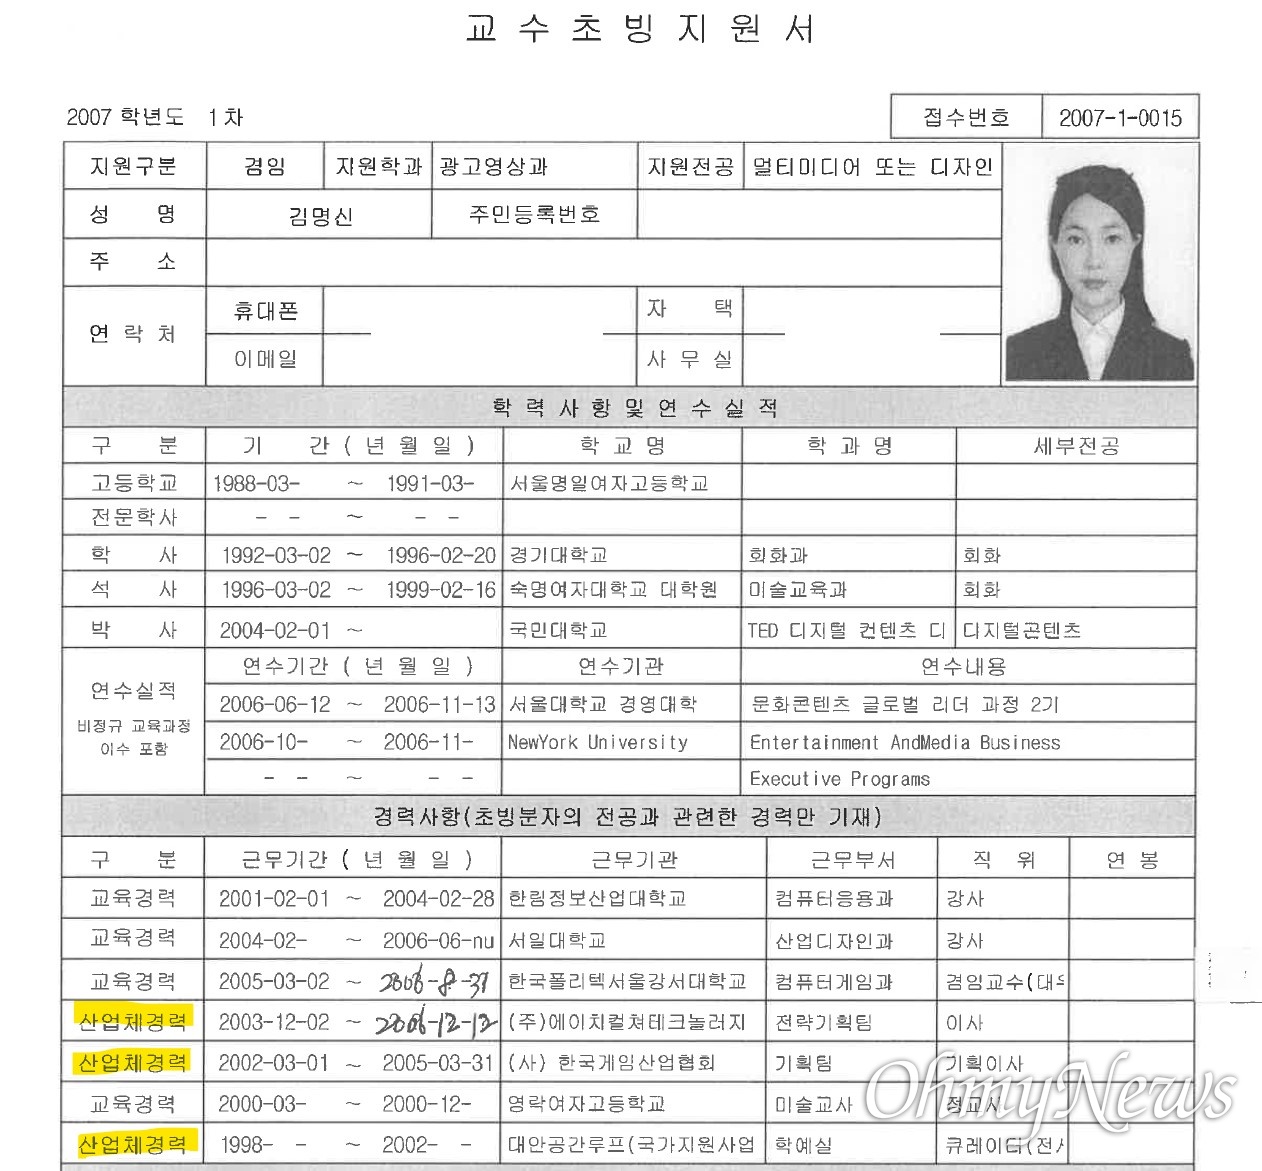 교수초빙지원서
2007 학년도 1차 접수번호 2007-1-0015
지원구분 겸임 지원학과 광고영상과 지원전공 멀티미디어 또는 디자인
성 명 김명신 주민등록번호
주 소
연 락 처 휴대폰 자 택
이메일 사 무 실
학 력 사 항 및 연 수 실 적
구 분 기 간 ( 년 월 일 ) 학 교 명 학 과 명 세부전공
고등학교 1988-03- ~ 1991-03- 서울명일여자고등학교
전문학사 - - ~ - -
학 사 1992-03-02 ~ 1996-02-20 경기대학교 회화과 회화
석 사 1996-03-02 ~ 1999-02-16 숙명여자대학교 대학원 미술교육과 회화
박 사 2004-02-01 ~ 국민대학교 TED 디지털 컨텐츠 디 디지털콘텐츠
연수실적 비정규 교육과정 이수 포함 연수기간 ( 년 월 일 ) 연수기관 연수내용
2006-06-12 ~ 2006-11-13 서울대학교 경영대학 문화콘텐츠 글로벌 리더 과정 2기
2006-10- ~ 2006-11- NewYork University Entertainment AndMedia Business
- - ~ - - Executive Programs
경력사항(초빙분자의 전공과 관련한 경력만 기재)
구 분 근무기간 ( 년 월 일 ) 근무기관 근무부서 직 위 연 봉
교육경력 2001-02-01 ~ 2004-02-28 한림정보산업대학교 컴퓨터응용과 강사
교육경력 2004-02- ~ 2006-06-nu 서일대학교 산업디자인과 강사
교육경력 2005-03-02 ~ 2006-8-31 한국폴리텍서울강서대학교 컴퓨터게임과 겸임교수(대우
산업체경력 2003-12-02 ~ 2006-12-12 (주)에이치컬쳐테크놀러지 전략기획팀 이사
산업체경력 2002-03-01 ~ 2005-03-31 (사) 한국게임산업협회 기획팀 기획이사
교육경력 2000-03- ~ 2000-12- 영락여자고등학교 미술교사 정교사
산업체경력 1998- - ~ 2002- - 대안공간루프(국가지원사업 학예실 큐레이터(전시
OhmyNews